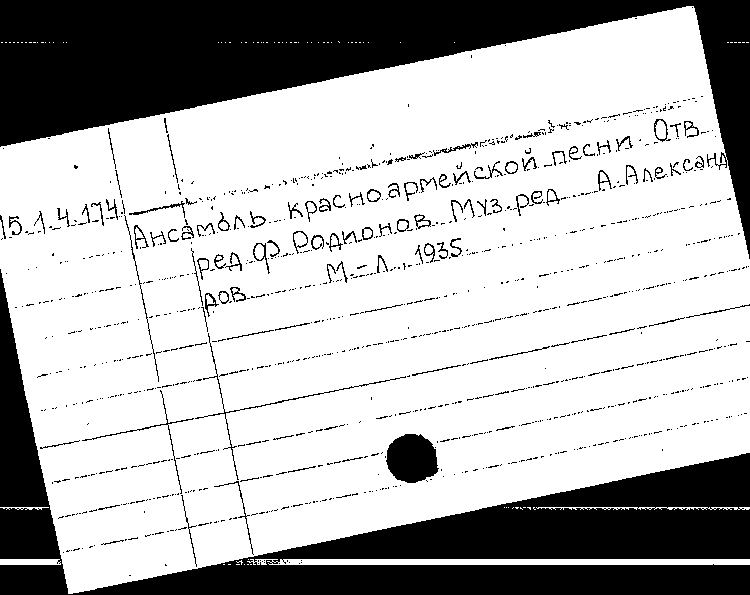 15.1.4.174.
Ансамбль красноармейской песни. Отв.
ред. Ф. Родионов. Муз. ред. А. Александ
ров. М.-Л., 1935.